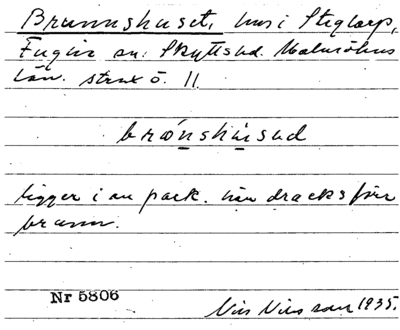 Brunnshuset, hus i Steglarp,
Fuglie sn. Skytts hd. Malmöhus
län. strax ö. 11.
brönshúsəd
ligger i en park. här dracks förr
brunn.
Nr 5806
Nils Nilsson 1935.